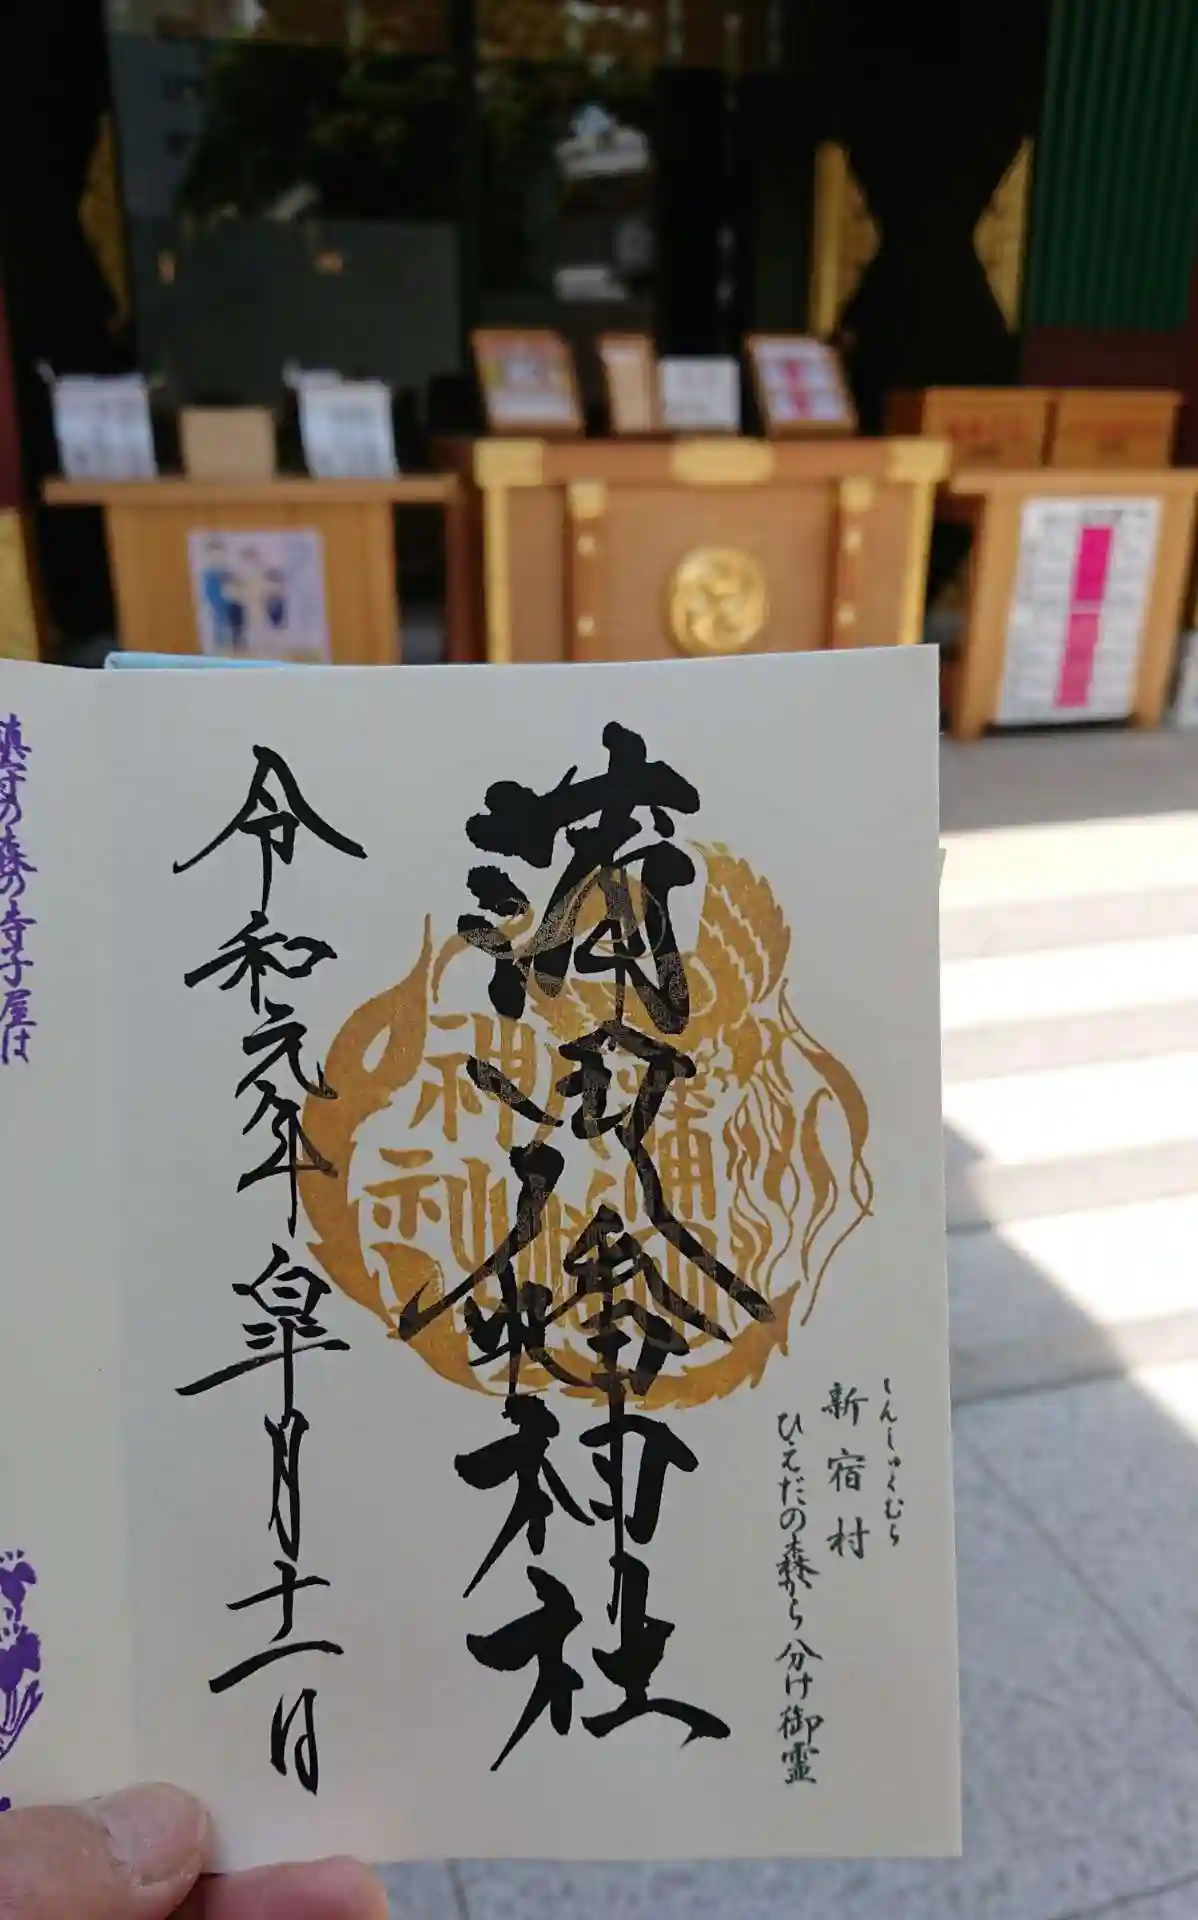 しんしゅくむら
新宿村
ひえだの森から分け御霊
蒲田八幡神社
蒲田八幡
神社
令和元年皐月十一日
鎮守の森の寺子屋は